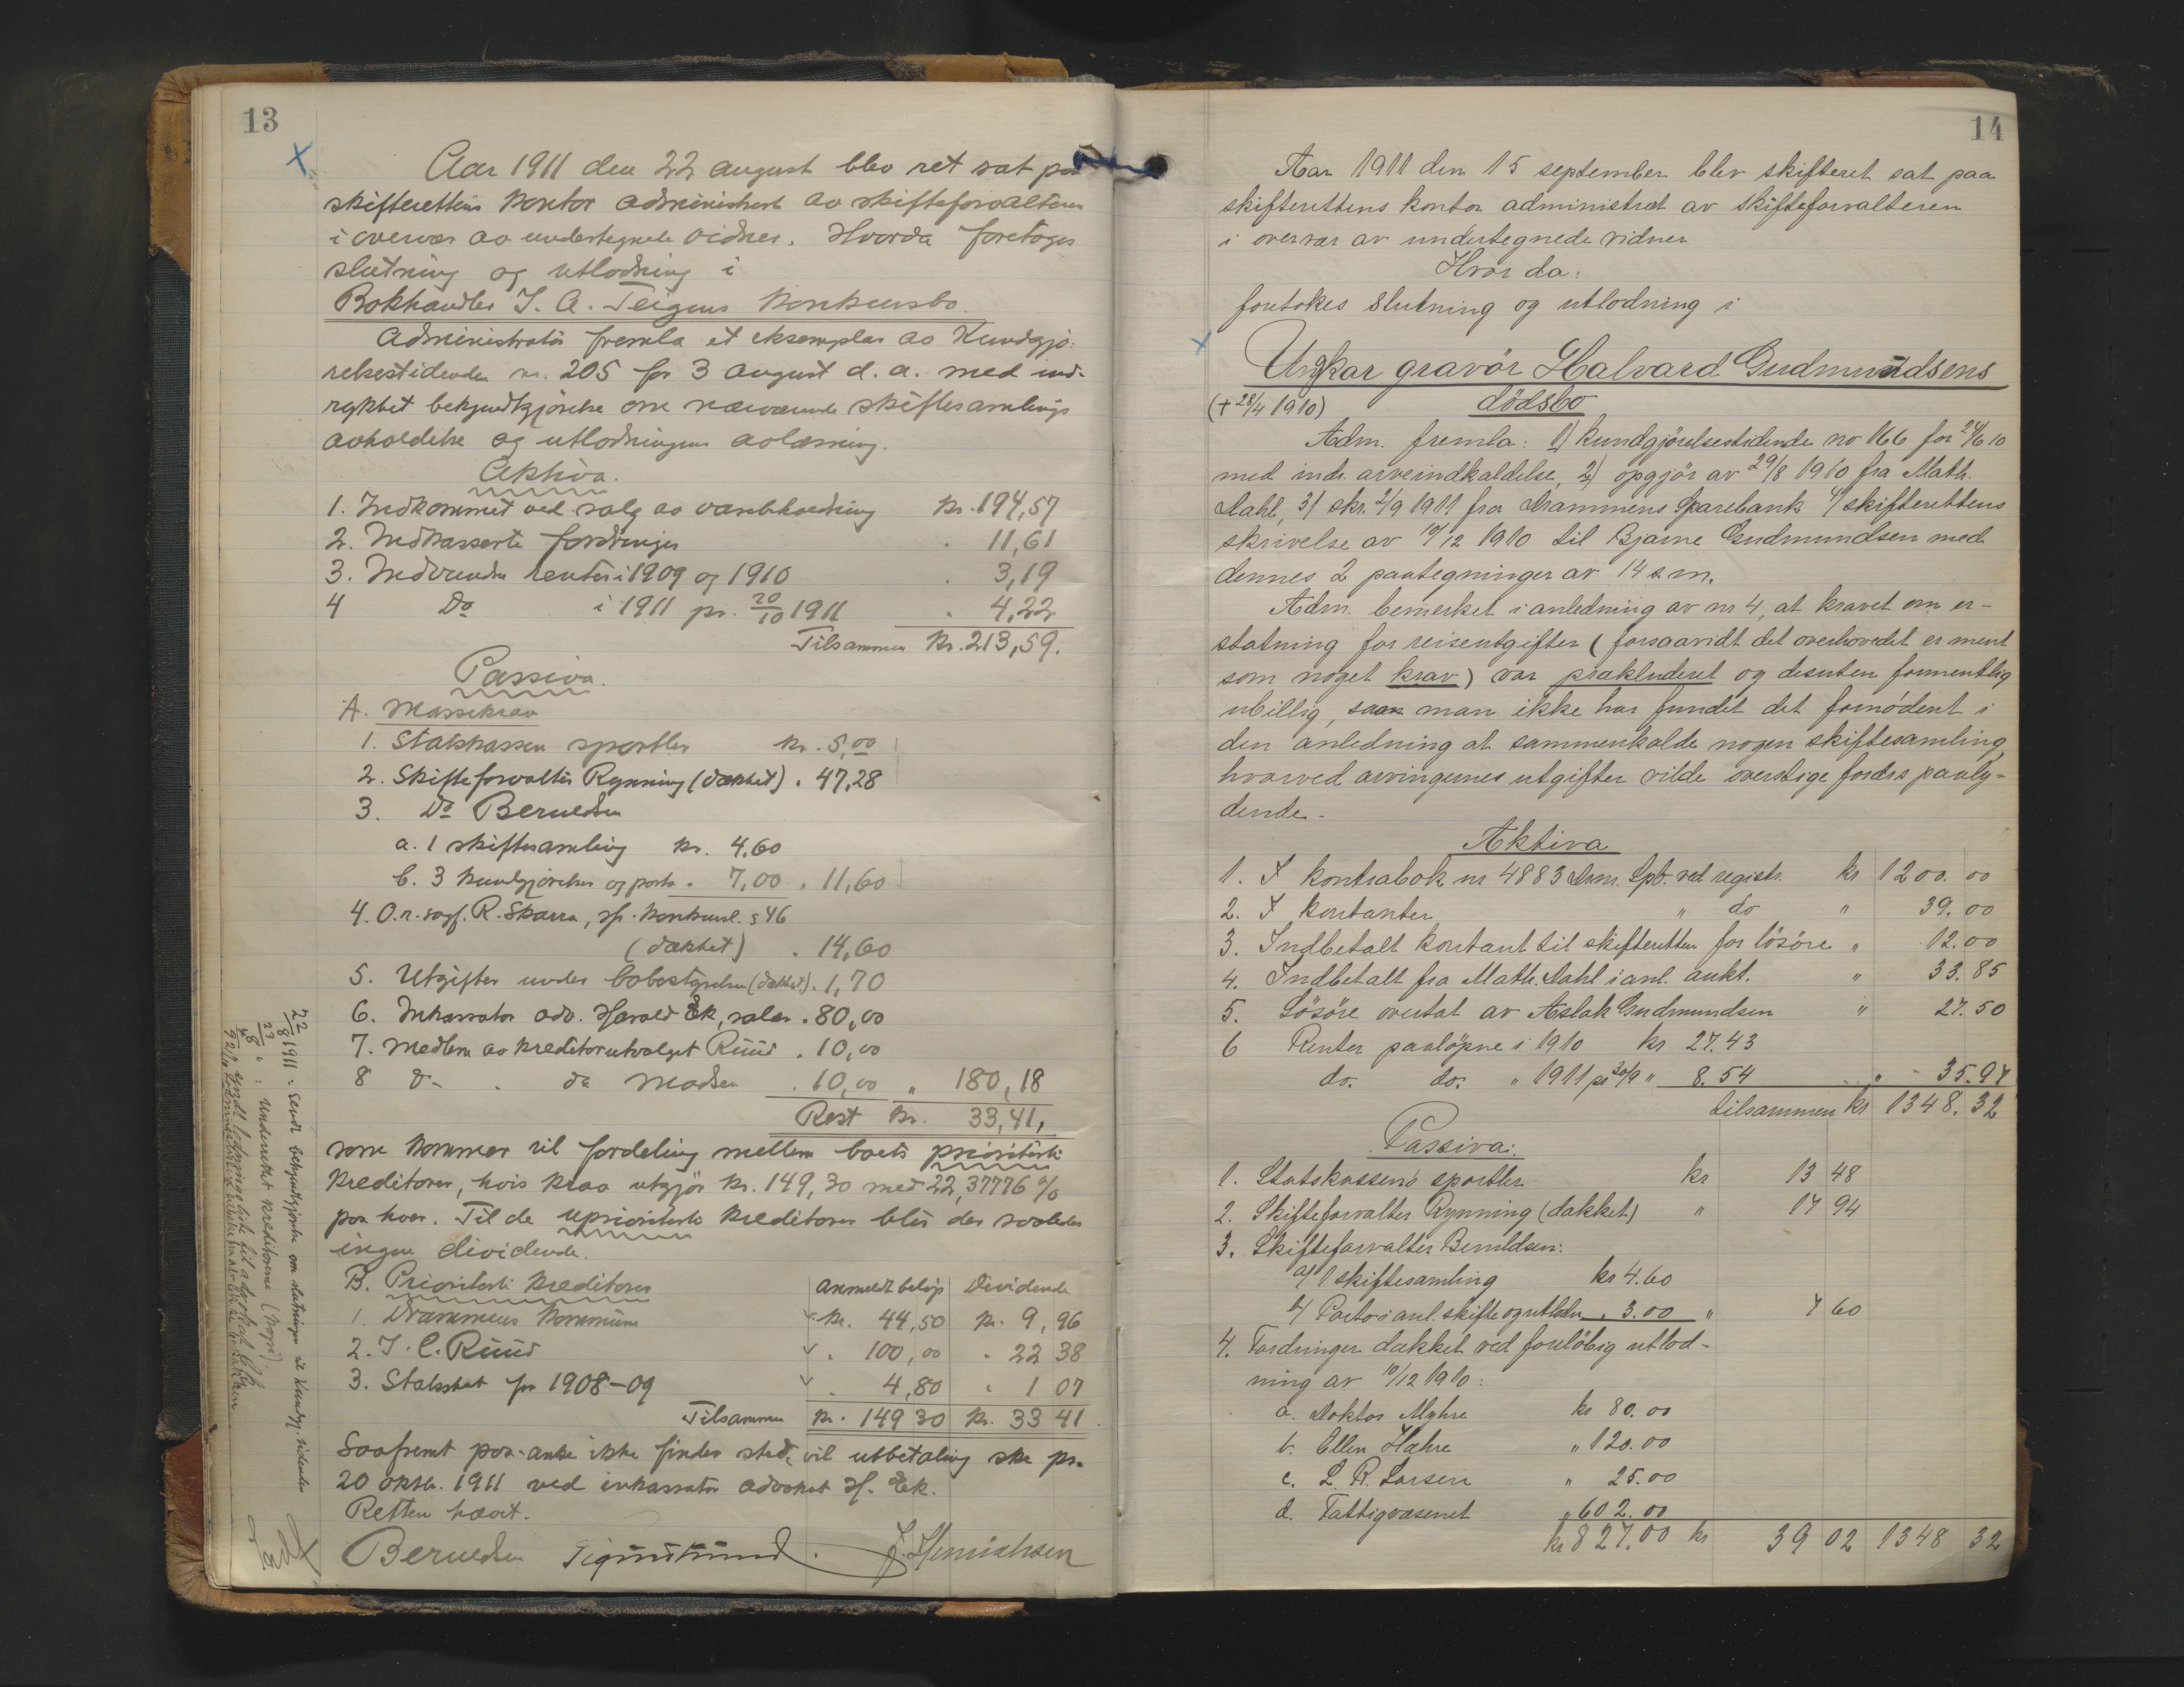 13
Aar 1911 den 22 august blev ret sat paa
skifterettens kontor administrert av skifteforvalteren
i overvær av undertegnede vidner. Hvorda foretoges
slutning og utlodning i
Bokhandler J. A. Teigens konkursbo.
Administrator fremla et eksemplar av Kundgjø-
relsestidenden nr. 205 for 3 august d. a. med ind-
rykket bekjendtgjørelse om nærværende skiftesamlings
avholdelse og utlodningens avlæsning.
Aktiva.
1. Indkommet ved salg av varebeholdning kr. 194,57
2. Indkasserte fordringer " 11,61
3. Indvundne renter i 1909 og 1910 " 3,19
4 Do i 1911 pr. 20/10 1911 " 4,22
Tilsammen kr. 213,59.
Passiva.
A. Massekrav
1. Statskassen sportler kr. 5,00
2. Skifteforvalter Rynning (dækket) " 47,28
3. Do Beruldsen
a. 1 skiftesamling kr. 4,60
b. 3 kundgjørelser og porto " 7,00 " 11,60
4. O.r.sagf. R. Skarra, jfr. konkursl. § 46
(dækket) " 14,60
5. Utgifter under bobestyrelsen (dækket) " 1,70
6. Inkassator adv. Harald Ek, salær " 80,00
7. Medlem av kreditorutvalget Ruud " 10,00
8 Do " do Madsen " 10,00 " 180,18
Rest kr. 33,41,
som kommer til fordeling mellem boets prioriterte
kreditorer, hvis krav utgjør kr. 149,30 med 22,37776 %
paa hver. Til de uprioriterte kreditorer blir der saaledes
ingen dividende.
B. Prioriterte kreditorer Anmeldt beløp Dividende
1. Drammens kommune kr. 44,50 kr. 9,96
2. J. C. Ruud " 100,00 " 22 38
3. Statsskat for 1908-09 " 4,80 " 1 07
Tilsammen kr. 149 30 kr. 33 41.
Saafremt paa-anke ikke finder sted, vil utbetaling ske pr.
20 oktbr. 1911 ved inkassator advokat H. Ek.
Retten hævet.
Beruldsen Sigm. Strand. J. Henrichsen
22/8 1911. Sendt bekjendtgjørelse om slutningen til Kundgj. tidenden
23/8 " : Underrettet kreditorene (kopi)
14
Aar 1911 den 15 september blev skifteret sat paa
skifterettens kontor administret av skifteforvalteren
i overvær av undertegnede vidner
Hvor da:
foretokes slutning og utlodning i
Ungkar gravör Halvard Gudmundsens
(+ 28/4 1910) dödsbo
Adm. fremla: 1) kundgjörelsestidende no 166 for 24/6 10
med indr. arveindkaldelse, 2) opgjör av 29/8 1910 fra Math.
Dahl, 3) skr. 2/9 1911 fra Drammens Sparebank 4) skifterettens
skrivelse av 10/12 1910 til Bjarne Gudmundsen med
dennes 2 paategninger av 14 s.m.
Adm. bemerket i anledning av nr 4, at kravet om er-
statning for reiseutgifter (forsaavidt det overhovedet er ment
som noget krav) var prækluderet og desuten formentlig
ubillig, saa man ikke har fundet det fornödent i
den anledning at sammenkalde nogen skiftesamling,
hvorved arvingernes utgifter vilde overstige fordrs paaly-
dende.
Aktiva
1. I kontrabok nr 4883 Drm. Spb. ved registr. kr 1200.00
2. I kontanter " do " 39.00
3. Indbetalt kontant til skifteretten for lösöre " 12.00
4. Indbetalt fra Math. Dahl i anl. aukt. " 33.85
5. Lösöre overtat av Aslak Gudmundsen " 27.50
6 Renter paalöpne i 1910 kr 27.43
do. do. " 1911 pr 30/9 " 8.54 " 35.97
tilsammen kr 1348.32
Passiva:
1. Statskassens sportler kr 13 48
2. Skifteforvalter Rynning (dækket) " 17 94
3. Skifteforvalter Beruldsen:
a) 1 skiftesamling kr 4.60
b) Porto i anl. skifte og utlodn. " 3.00 " 7 60
4. Fordringer dækket ved foreløbig utlod-
ning av 10/12 1910:
a. Doktor Myhre kr 80.00
b. Ellen Hahre " 120.00
c. L. R. Larsen " 25.00
d. Fattigvæsenet " 602.00
kr 827.00 kr 39 02 1348 32